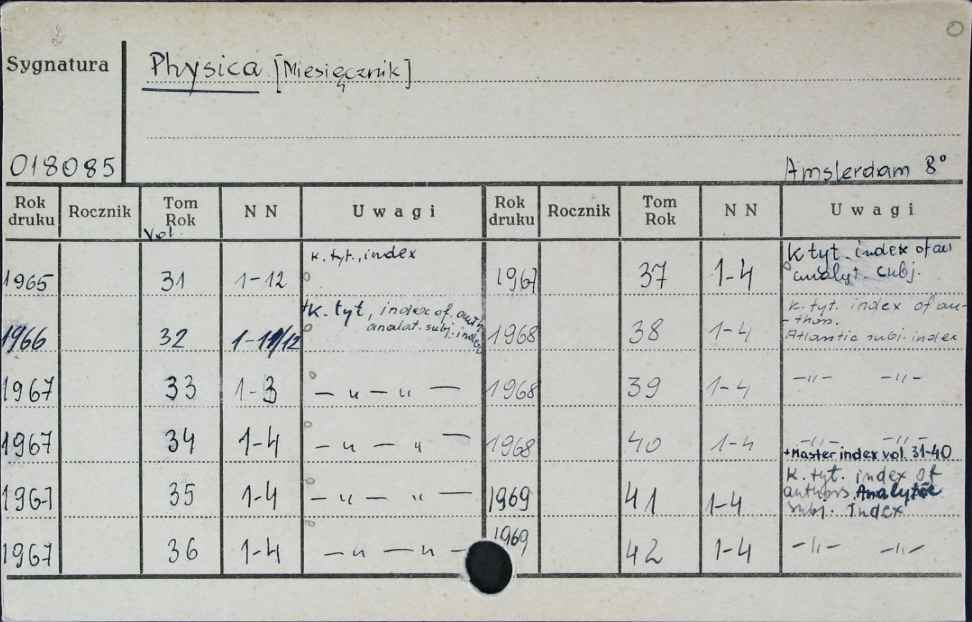 Sygnatura
Physica [Miesięcznik]
018085
Amsterdam 8°
Rok druku Rocznik Tom Rok N N Uwagi Rok druku Rocznik Tom Rok N N Uwagi
Vol.
1965 31 1-12 k. tyt., index 1967 37 1-4 K tyt. index of au
analyt. subj.
1966 32 1-11/12 +K. tyt, index of auth 1968 38 1-4 k. tyt. index of au-
analat. subj. index -thors.
Atlantic subj. index
1967 33 1-3 — „ — „ — 1968 39 1-4 -„- -„-
1967 34 1-4 — „ — „ — 1968 40 1-4 -„- -„-
+Master index vol. 31-40
1967 35 1-4 — „ — „ — 1969 41 1-4 K. tyt. index of
authors. Analytic
subj. Index
1967 36 1-4 — „ — „ — 1969 42 1-4 -„- -„-